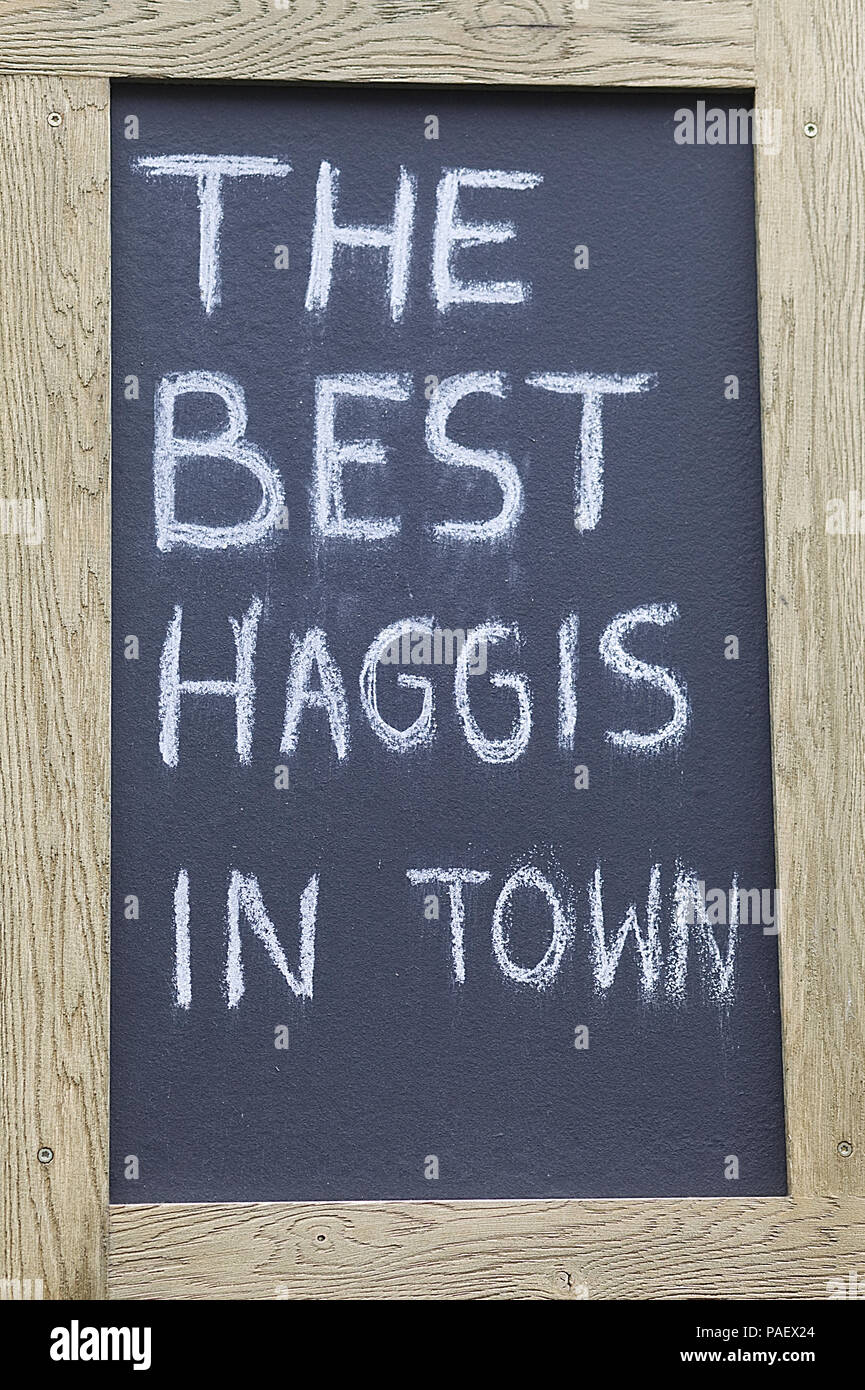 THE
BEST
HAGGIS
IN TOWN
alamy
alamy
Image ID: PAEX24
www.alamy.com